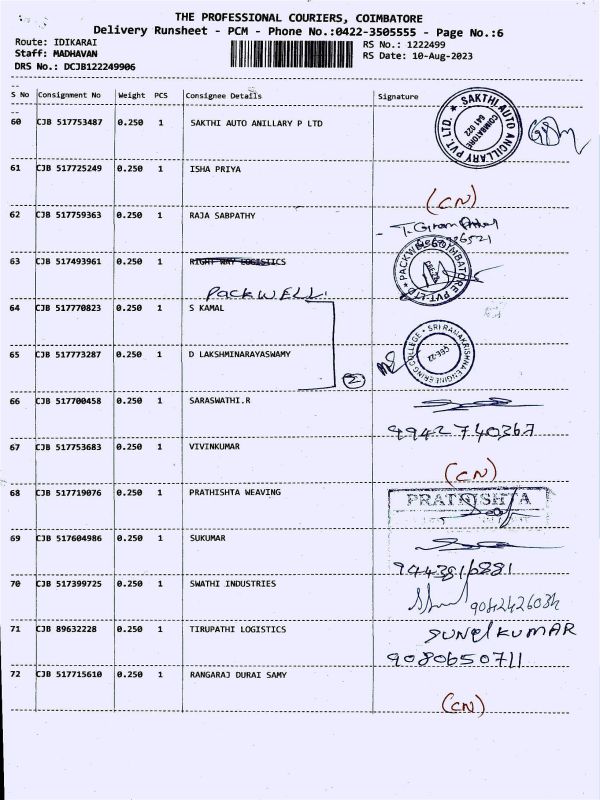 THE PROFESSIONAL COURIERS, COIMBATORE
Delivery Runsheet - PCM - Phone No.:0422-3505555 - Page No.:6
Route: IDIKARAI RS No.: 1222499
Staff: MADHAVAN RS Date: 10-Aug-2023
DRS No.: DCJB122249906
S No Consignment No Weight PCS Consignee Details Signature
60 CJB 517753487 0.250 1 SAKTHI AUTO ANILLARY P LTD
SAKTHI AUTO ANCILLARY PVT. LTD.
COIMBATORE
641 022
61 CJB 517725249 0.250 1 ISHA PRIYA
(CN)
62 CJB 517759363 0.250 1 RAJA SABPATHY
63 CJB 517493961 0.250 1 RIGHT WAY LOGISTICS
PACKWELL
64 CJB 517770823 0.250 1 S KAMAL
65 CJB 517773287 0.250 1 D LAKSHMINARAYASWAMY
SRI RAMAKRISHNA ENGINEERING COLLEGE
CBE-22
2
66 CJB 517700458 0.250 1 SARASWATHI.R
9942740367
67 CJB 517753683 0.250 1 VIVINKUMAR
(CN)
68 CJB 517719076 0.250 1 PRATHISHTA WEAVING
PRATHISHTA
69 CJB 517604986 0.250 1 SUKUMAR
9443816881
70 CJB 517399725 0.250 1 SWATHI INDUSTRIES
71 CJB 89632228 0.250 1 TIRUPATHI LOGISTICS
SUNEL KUMAR
9080650711
72 CJB 517715610 0.250 1 RANGARAJ DURAI SAMY
(CN)